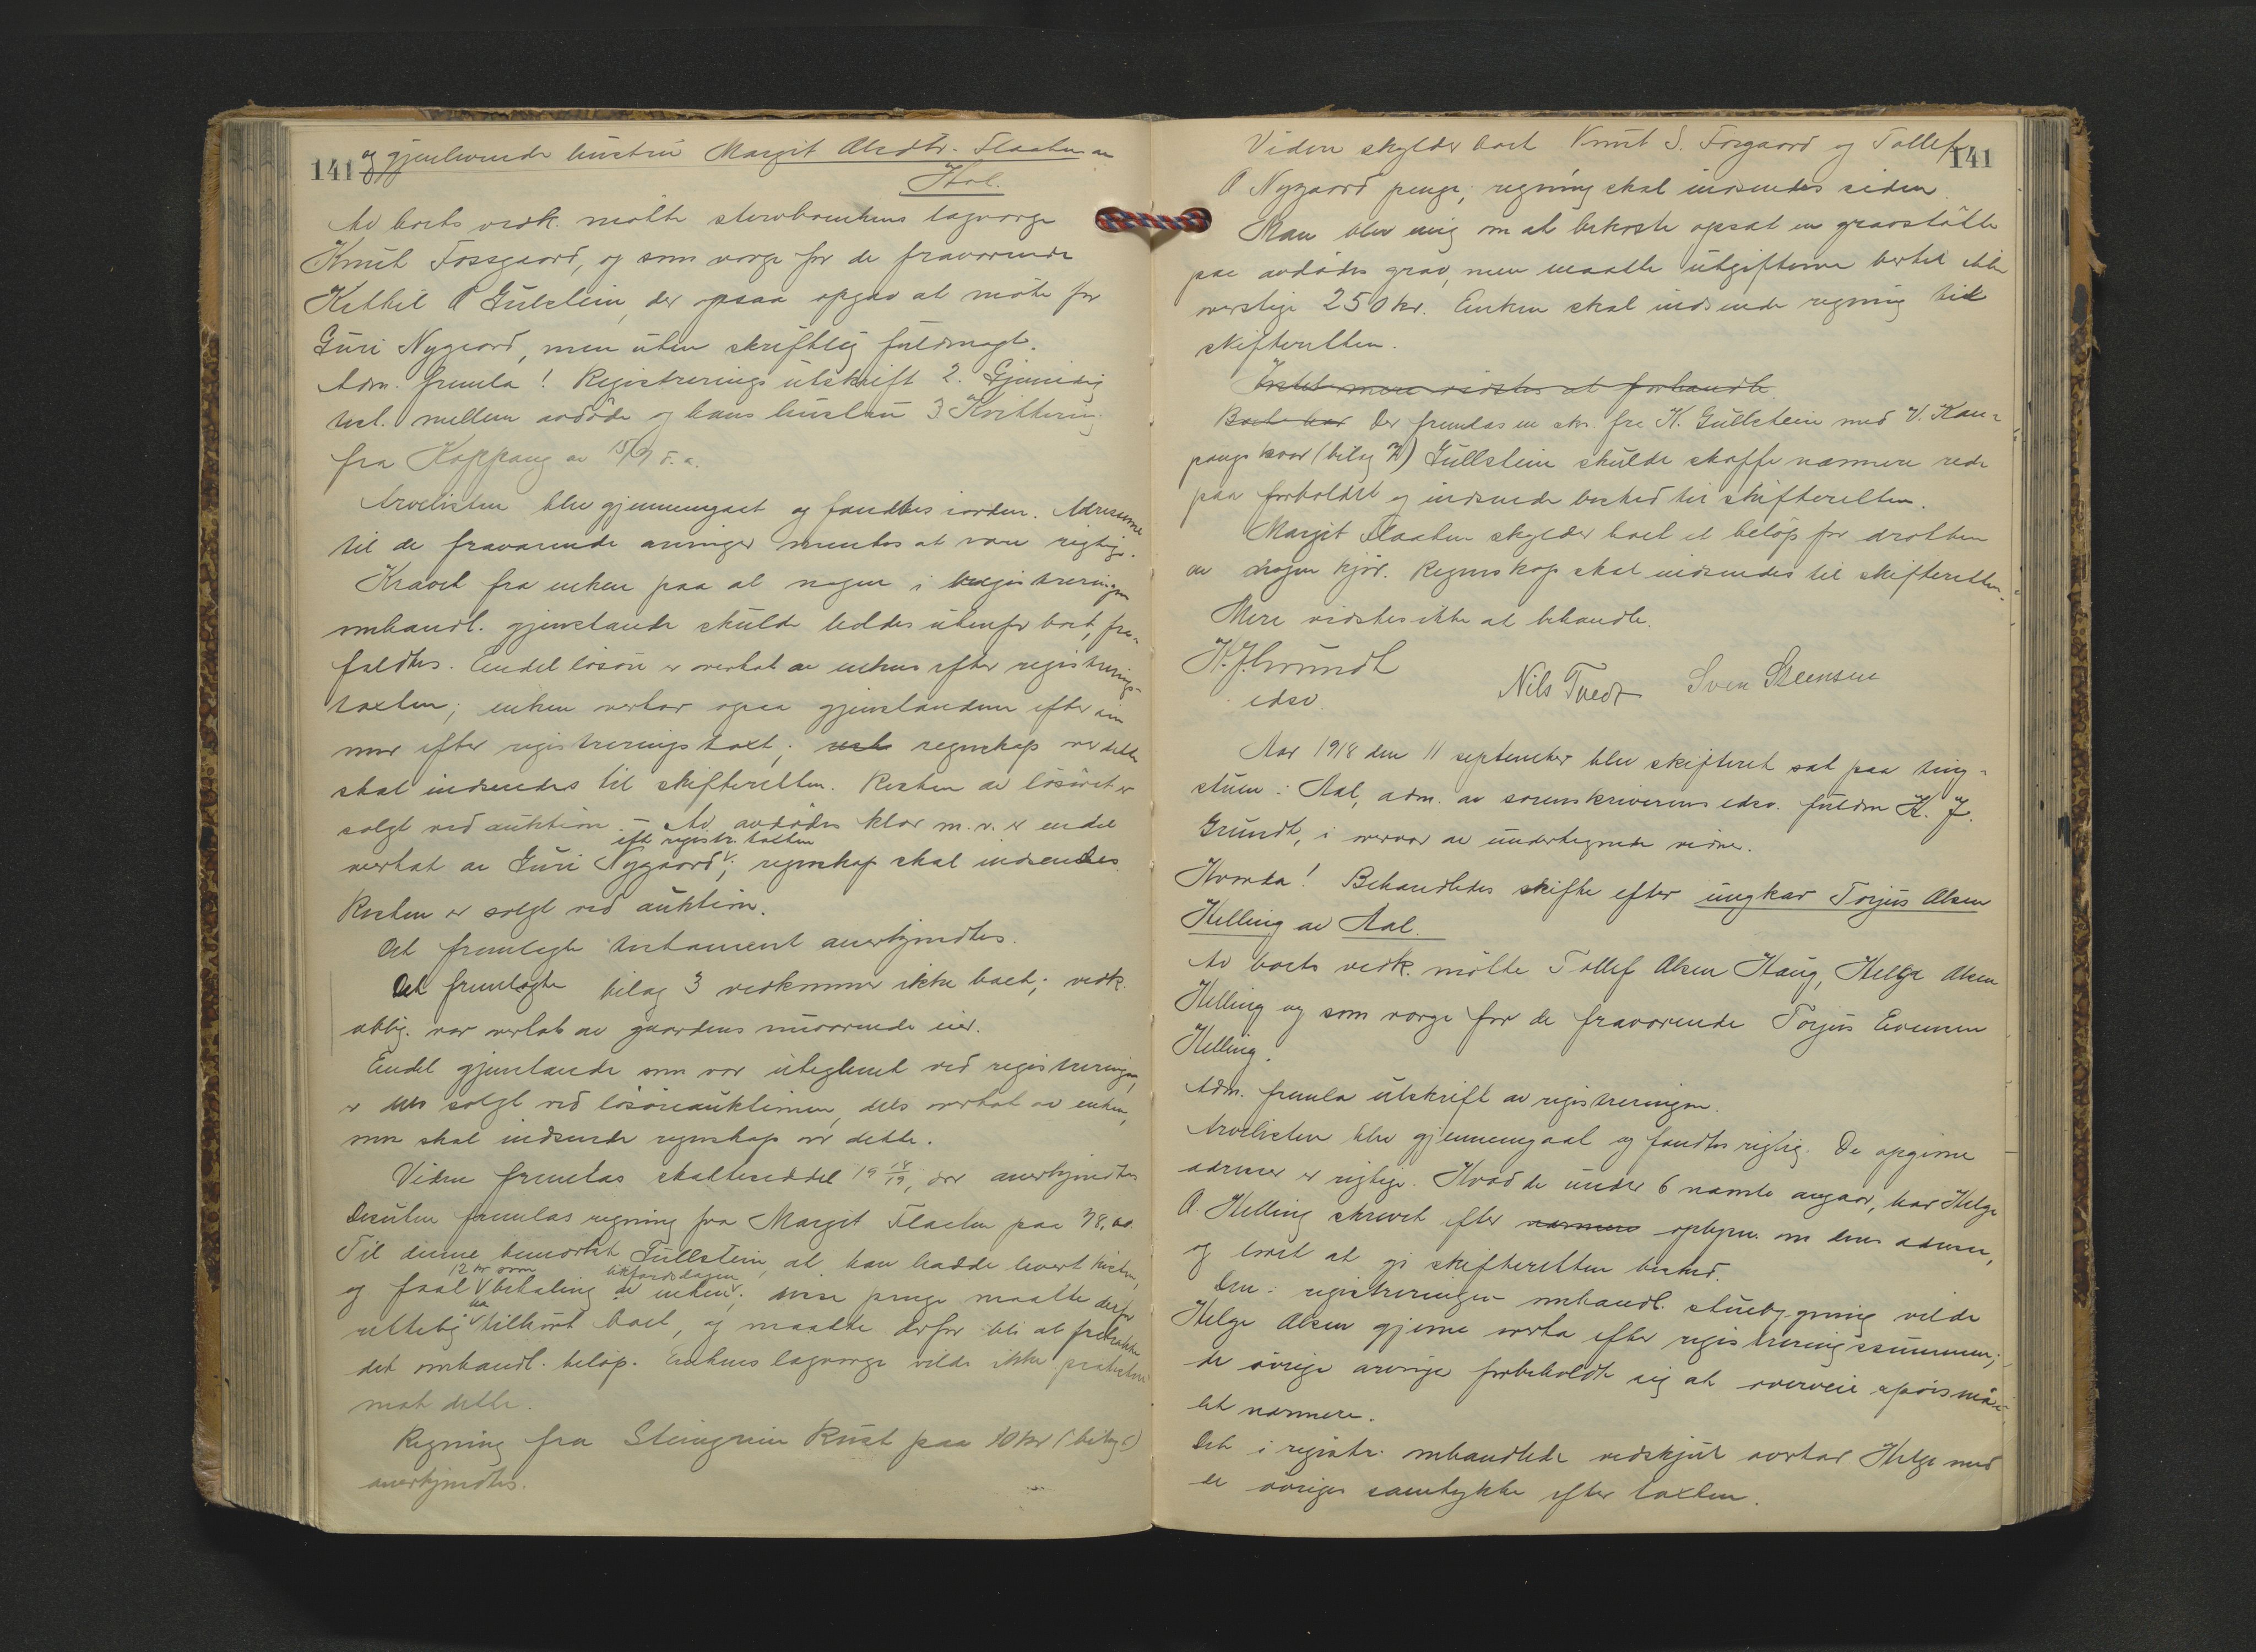 141 og gjenlevende hustru Margit Alsdtr. Flaaten av
Hol.
Av boets vedk. mötte stervboenkens lagverge
Knut Fossgaard, og som verge for de fraværende
Kittil O Gullstein, der ogsaa opgav at möte for
Guri Nygaard, men uten skriftlig fuldmagt.
Adm. fremla 1. Registrerings utskrift 2. Gjensidig
test. mellem avdöde og hans hustru 3 Kvittering
fra Koppang av
Arvelisten blev gjennemgaat og fandtes iorden. Adressene
til de fraværende arvinger mentes at være rigtige.
Kravet fra enken paa at nogen i registreringen
omhandl. gjenstande skulde holdes utenfor boet, fra-
faldtes. Endel lösöre er overtat av enken efter registrerings-
taxten; enken overtar ogsaa gjenstandene efter
efter registreringstaxt; regnskap over dette
skal indsendes til skifteretten. Resten av lösöret er
solgt ved auktion. – Av avdödes klær m.v. er endel
efter registr. taxten
overtat av Guri Nygaard; regnskap skal indsendes.
Resten er solgt ved auktion.
Det fremlagte testament anerkjendtes.
Det fremlagte bilag 3 vedkommer ikke boet; vedk.
oblig. var overtat av gaardens nuværende eier.
Endel gjenstande som var uteglemt ved registreringen,
er dels solgt ved lösöreauktionen, dels overtat av enken,
som skal indsende regnskap over dette.
Videre fremlas skatteseddel 19 18/19, der anerkjendtes
Desuten fremlas regning fra Margit Flaaten paa 78,00
Til denne bemerket Gullstein, at han hadde levert kisten,
12 kr som likfærdsdagen
og faat betaling av enken; disse penge maatte derfor
ha
rettelig tilhört boet, og maatte derfor bli at fratrække
det omhandl. belöp. Enkens lagverge vilde ikke protestere
mot dette.
Regning fra Steingrim Rust paa 10 kr (bilag 6)
anerkjendtes.
Videre skylder boet Knut S. Fosgaard og Tollef 141
O Nygaard penge; regning skal indsendes siden
Man blev enig om at bekoste opsat en gravstötte
paa avdödes grav, men maatte utgifterne hertil ikke
overstige 250 kr. Enken skal indsende regning til
skifteretten.
Intet mere vistes at forhandle.
Boet har Der fremlas en skr. fra K. Gullstein med V. Kau-
pangs svar (bilag 7) Gullstein skulde skaffe nærmere rede
paa forholdet og indsende besked til skifteretten.
Margit Flaaten skylder boet et belöp for drotten
av nogen kjör. Regnskap skal indsendes til skifteretten.
Mere vidstes ikke at behandle.
K. J. Grundt
edsv.
Nils Tvedt Sven Steensen
Aar 1918 den 11 september blev skifteret sat paa ting-
stuen i Aal, adm. av sorenskriverens edsv. fuldm K. J.
Grundt, i overvær av undertegnede vidner.
Hvorda! Behandledes skifte efter ungkar Torjus Olsen
Helling av Aal.
Av boets vedk. mötte Tollef Olsen Haug, Helge Olsen
Helling og som verge for de fraværende Torjus Evensen
Helling.
Adm. fremla utskrift av registreringen.
Arvelisten blev gjennemgaat og fandtes rigtig. De opgivne
adresser er rigtige. Hvad de under 6 nævnte angaar, har Helge
O Helling skrevet efter nærmere oplysn. om deres adresse,
og lovet at gi skifteretten besked.
Den i registreringen omhandl. stuebygning vilde
Helge Olsen gjerne overta efter registreringssummen;
de övrige arvinger forbeholdt sig at overveie spörsmaa-
let nærmere.
Det i registr. omhandlede vedskjul overtar Helge med
de övriges samtykke efter taxten.